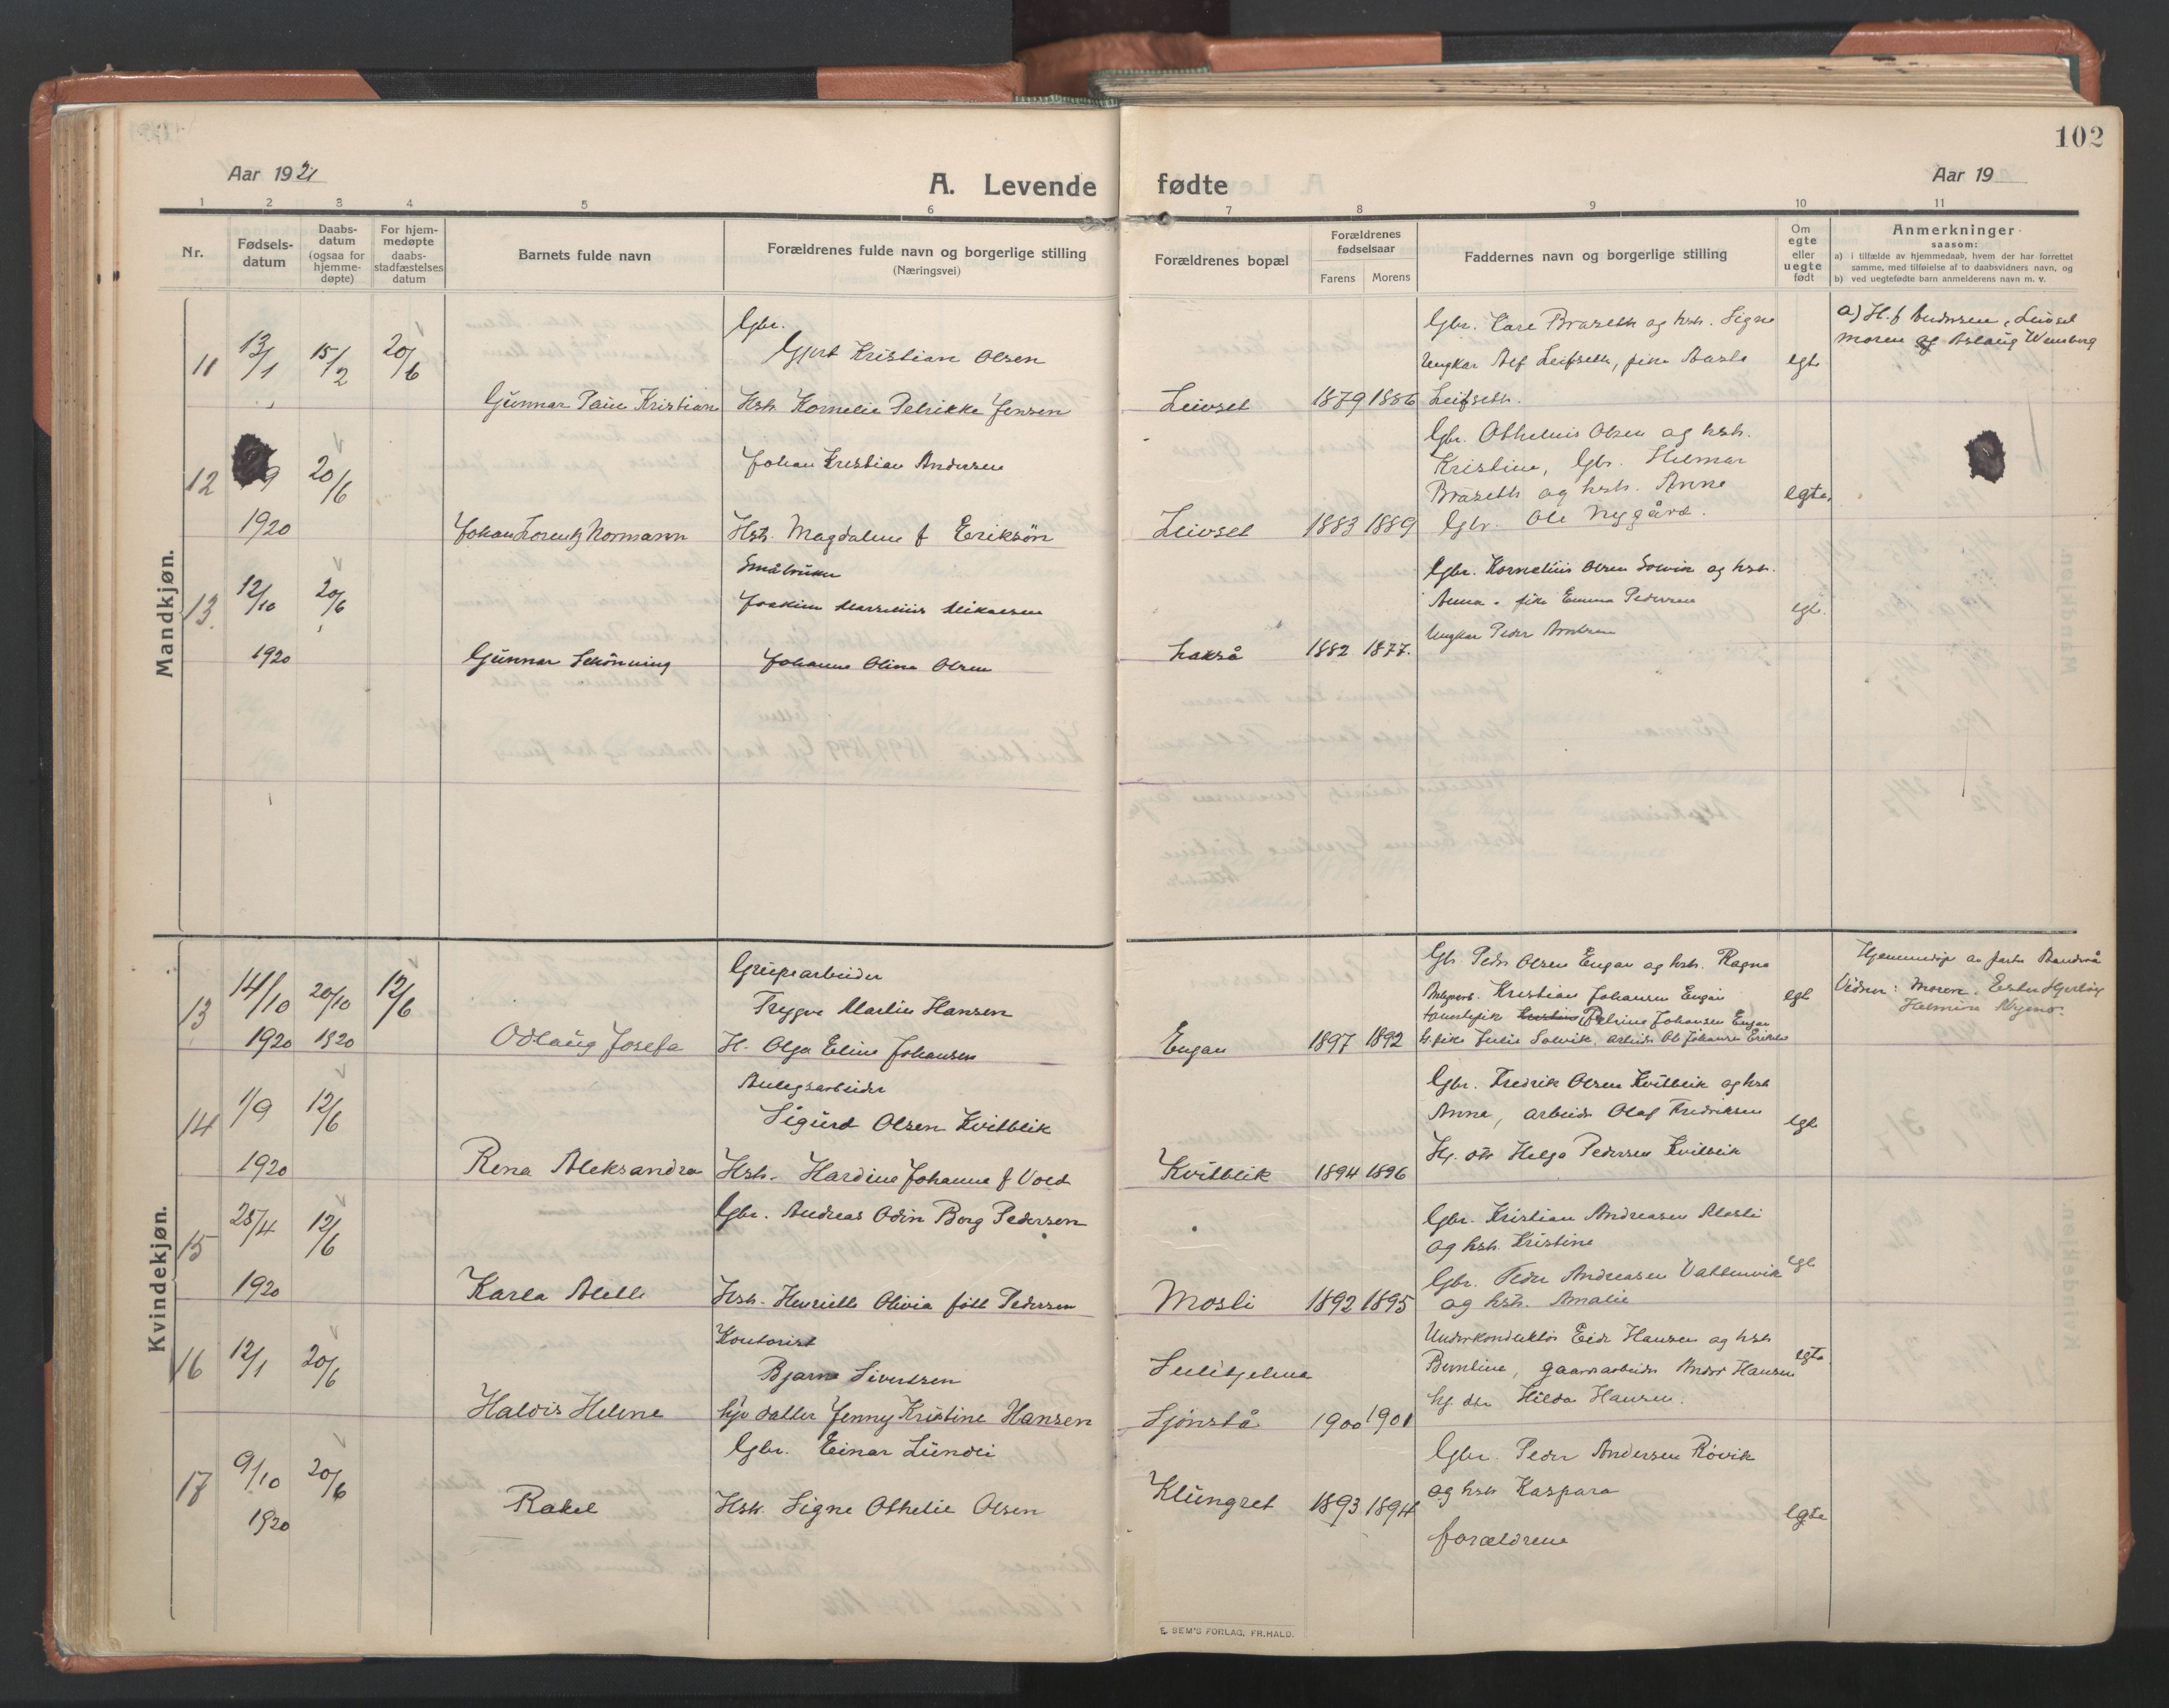 102
Aar 1921
A. Levende fødte
Aar 19
1 2 3 4 5 6 7 8 9 10 11
Nr.
Fødsels-
datum
Daabs-
datum
(ogsaa for
hjemme-
døpte)
For hjem-
medøpte
daabs-
stadfæstelses
datum
Barnets fulde navn
Forældrenes fulde navn og borgerlige stilling
(Næringsvei)
Forældrenes bopæl
Forældrenes
fødselsaar
Farens Morens
Faddernes navn og borgerlige stilling
Om
egte
eller
uegte
født
Anmerkninger
saasom:
a) i tilfælde av hjemmedaab, hvem der har forrettet
samme, med tilføielse af to daabsvidners navn, og
b) ved uegtefødte barn anmelderens navn m. v.
Mandkjøn.
11 13/1 15/2 20/6
Gunnar Paul Kristian
Gbr.
Gjert Kristian Olsen
Hstr. Kornelie Petrikke Jensen
Leivset 1879 1886
Gbr. Kare Braseth og hstr. Signe
Ungkar Alf Leifseth, pike Aasta
Leifseth.
egte
a) H. f Andersen, Leivset
moren og Aslaug Wensberg
12 9 20/6
1920
Johan Lorentz Normann
Johan Kristian Andersen
Hstr. Magdalene f Eriksøn
Leivset 1883 1889
Gbr. Othelius Olsen og hstr.
Kristine, Gbr. Hilmar
Braseth og hstr. Anne
Gbr. Ole Nygård.
egte.
13. 12/10 20/6
1920
Gunnar Schönning
Småbruker
Joakim Marselius Mikalsen
Johanne Oline Olsen
Lakså 1882 1877.
Gbr. Kornelius Olsen Solvik og hstr.
Anna - pike Emma Pedersen
Ungkar Peder Arntsen
egte.
Kvindekjøn.
13 14/10 20/10 12/6
1920 1920
Odlaug Josefa
Grupearbeider
Trygve Martin Hansen
H. Olga Eline Johansen
Engan 1897 1892
Gbr. Peder Olsen Engan og hstr. Ragna
Kristian Johansen Engan
Petrine Johansen Engan
G. pike Julie Solvik, arbeider Ole Johansen
egte
Hjemmedøpt av
Vidner: Moren. Ester
Helmine Nymo.
14 1/9 12/6
1920
Rena Aleksandra
Anlegsarbeider
Sigurd Olsen Kvitblik
Hstr. Hardine Johanne f Vold
Kvitblik 1894 1896
Gbr. Fredrik Olsen Kvitblik og hstr
Anna, arbeider Olaf Fredriksen
Hj. dtr Helga Pedersen Kvitblik
egte
15 25/4 12/6
1920
Karla Alette
Gbr. Andreas Odin Borg Pedersen
Hstr. Henriette Olivia født Pedersen
Mosli 1892 1895
Gbr. Kristian Andreasen Mosli
og hstr. Kristine
Gbr. Peder Andreasen Vattenvik
og hstr. Amalie
egte
16 12/1 20/6
Haldis Helene
Kontorist
Bjarne Sivertsen
hjv datter Jenny Kristine Hansen
Sulitjelma
Sjønstå 1900 1901
Underkonduktør Eidr Hansen og hstr
Berntine, gaardarbeider Andor Hansen
hj. dtr Hilda Hansen.
egte.
17 9/10 20/6
1920
Rakel
Gbr. Einar Lundli
Hstr. Signe Othelie Olsen
Klungset 1893 1894
Gbr. Peder Andersen Røvik
og hstr Kaspara
forældrene
egte
E. SEM'S FORLAG, FR.HALD.